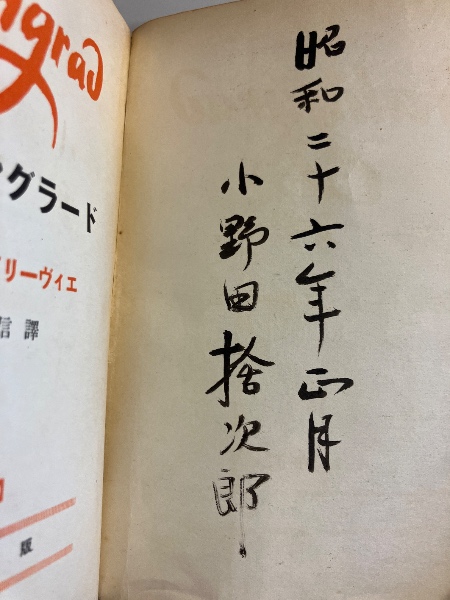 昭和二十六年正月
小野田捨次郎
ngrad
グラード
リーヴィエ
信譯
版